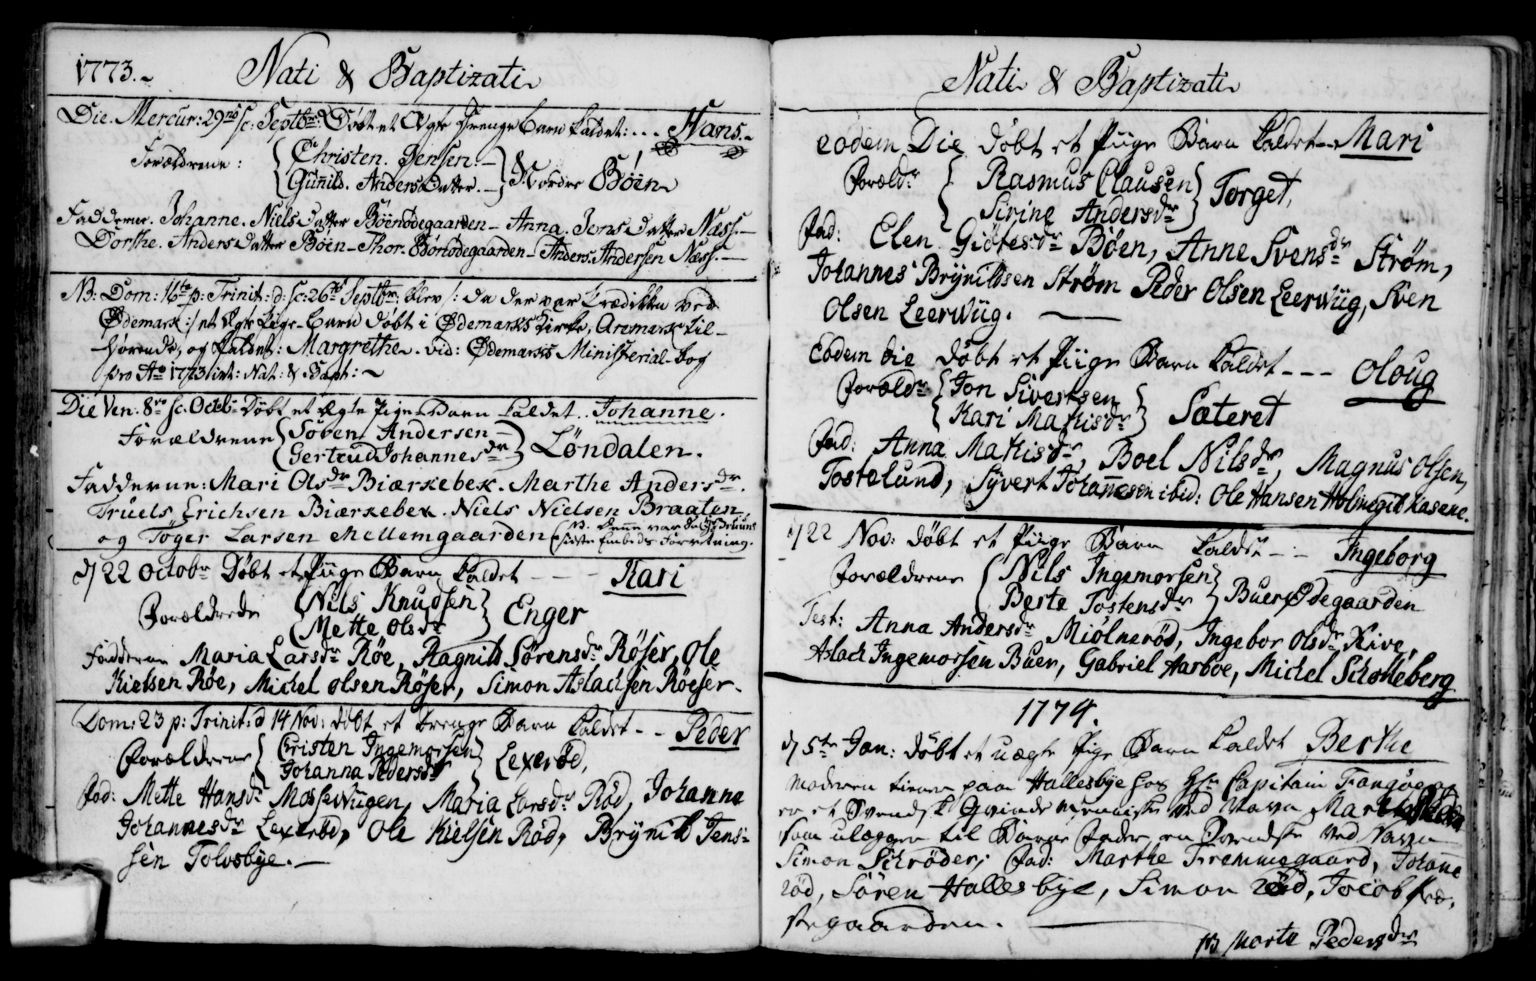 1773. Nati & Baptizati
Die Mercur: 29 sc: Septbr: Døbt et Ægte Drenge Barn kaldet: ... Hans.
Forældrene: Christen Jensen.
Gunild. Anders Datter. Nordre Böen
Fadderne. Johanne. Niels Datter Böenödegaarden - Anna. Jens Datter Næss.
Dorthe. Anders Datter Böen - Thor. Bönödegaarden - Anders. Andersen Næss.
NB: Dom: 16 p: Trinit: d: sc: 26 Septbr: blev /: da der var Prædiken ved
Ødemark :/ et Ægte Pige-Barn döbt i Ødemarks Kirke, Aremark til-
hörende, og kaldet: Margrethe. vid: Ødemarks Ministerial-bog
pro Ao 1773 tit: Nat: & Bapt:
Die Ven: 8 sc: Octobr: Döbt et Ægte Pige Barn kaldet.. Johanne.
Forældrene Sören Andersen
Gertrud Johannesdr Löndalen.
Fadderne: Mari Olsdr Biærkebek. Marthe Andersdr.
Truels Erichsen Biærkebek. Niels Nielsen Braaten,
og Töger Larsen Mellemgaarden (NB. denne var
sidste Embeds Forretning.
d 22 Octobr Døbt et Piige Barn kaldet - - - Kari
Forældrede Nils Knudsen
Mette Olsdr Enger
Fadderne Maria Larsdr Røe, Ragnild Sørensdr Røser, Ole
Kielsen Røe, Michel Olsen Røser, Simon Aslachsen Røeser.
Dom: 23 p: Trinit: d 14 Nov: døbt et Drenge Barn kaldet - - Peder
Forældrene Cristen Ingemorsen
Johanna Pedersdr Lexerød,
Fad: Mette Hansdr Mosseviigen, Maria Larsdr Rød, Johanna
Johannesdr Lexerød, Ole Kielsen Rød, Brynild Jens-
sen Tolvsbye.
Nati & Baptizati
eodem Die døbt et Piige Barn kaldet - Mari
Foreldr Rasmus Clausen
Sirine Andersdr Torget,
Fad: Elen Giötesdr Bøen, Anne Svensdr Strøm,
Johannes Brynildsen Strøm Peder Olsen Leerviig, Sven
Olsen Leerviig.
eodem die døbt et Piige Barn kaldet - - - Oloug
Foreldr Jon Sivertsen
Kari Mathisdr Sæteret
Fad: Anna Matisdr, Boel Nilsdr, Magnus Olsen,
Tostelund, Syvert Johannesen ibid: Ole Hansen Holmegil Kasene.
d 22 Nov: døbt et Piige Barn kaldet - - Ingeborg
Forældrene Nils Ingemorsen
Berte Tostensdr Buer Ødegaarden
Test: Anna Andersdr Miølnerød, Ingebor Olsdr Kive,
Aslach Ingemorsen Buer, Gabriel Aarboe, Michel Scholleberg
1774.
d 5te Jan: døbt et uægte Pige Barn kaldet Berthe
Moderen tiener paa Hallesbye hos Capitain
er et Svensk Qvinde menniske ved Navn
som udlægger til Barne Fader en Svendsk ved Navn
Simon Schrøder; Fad: Marthe Fremmegaard, Johane
rød, Søren Hallesbye, Simon rød, Jocob Præ-
stegaarden.
NB Marte Pedersdr